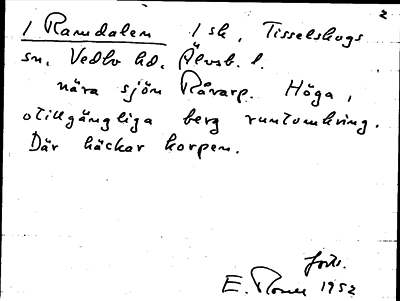 2
/ Ramdalen / sk, Tisselskogs
sn. Vedbo hd. Älvsb. l.
nära sjön Råvarp. Höga,
otillgängliga berg runtomkring.
Där häckar korpen.
forts.
E. 1952